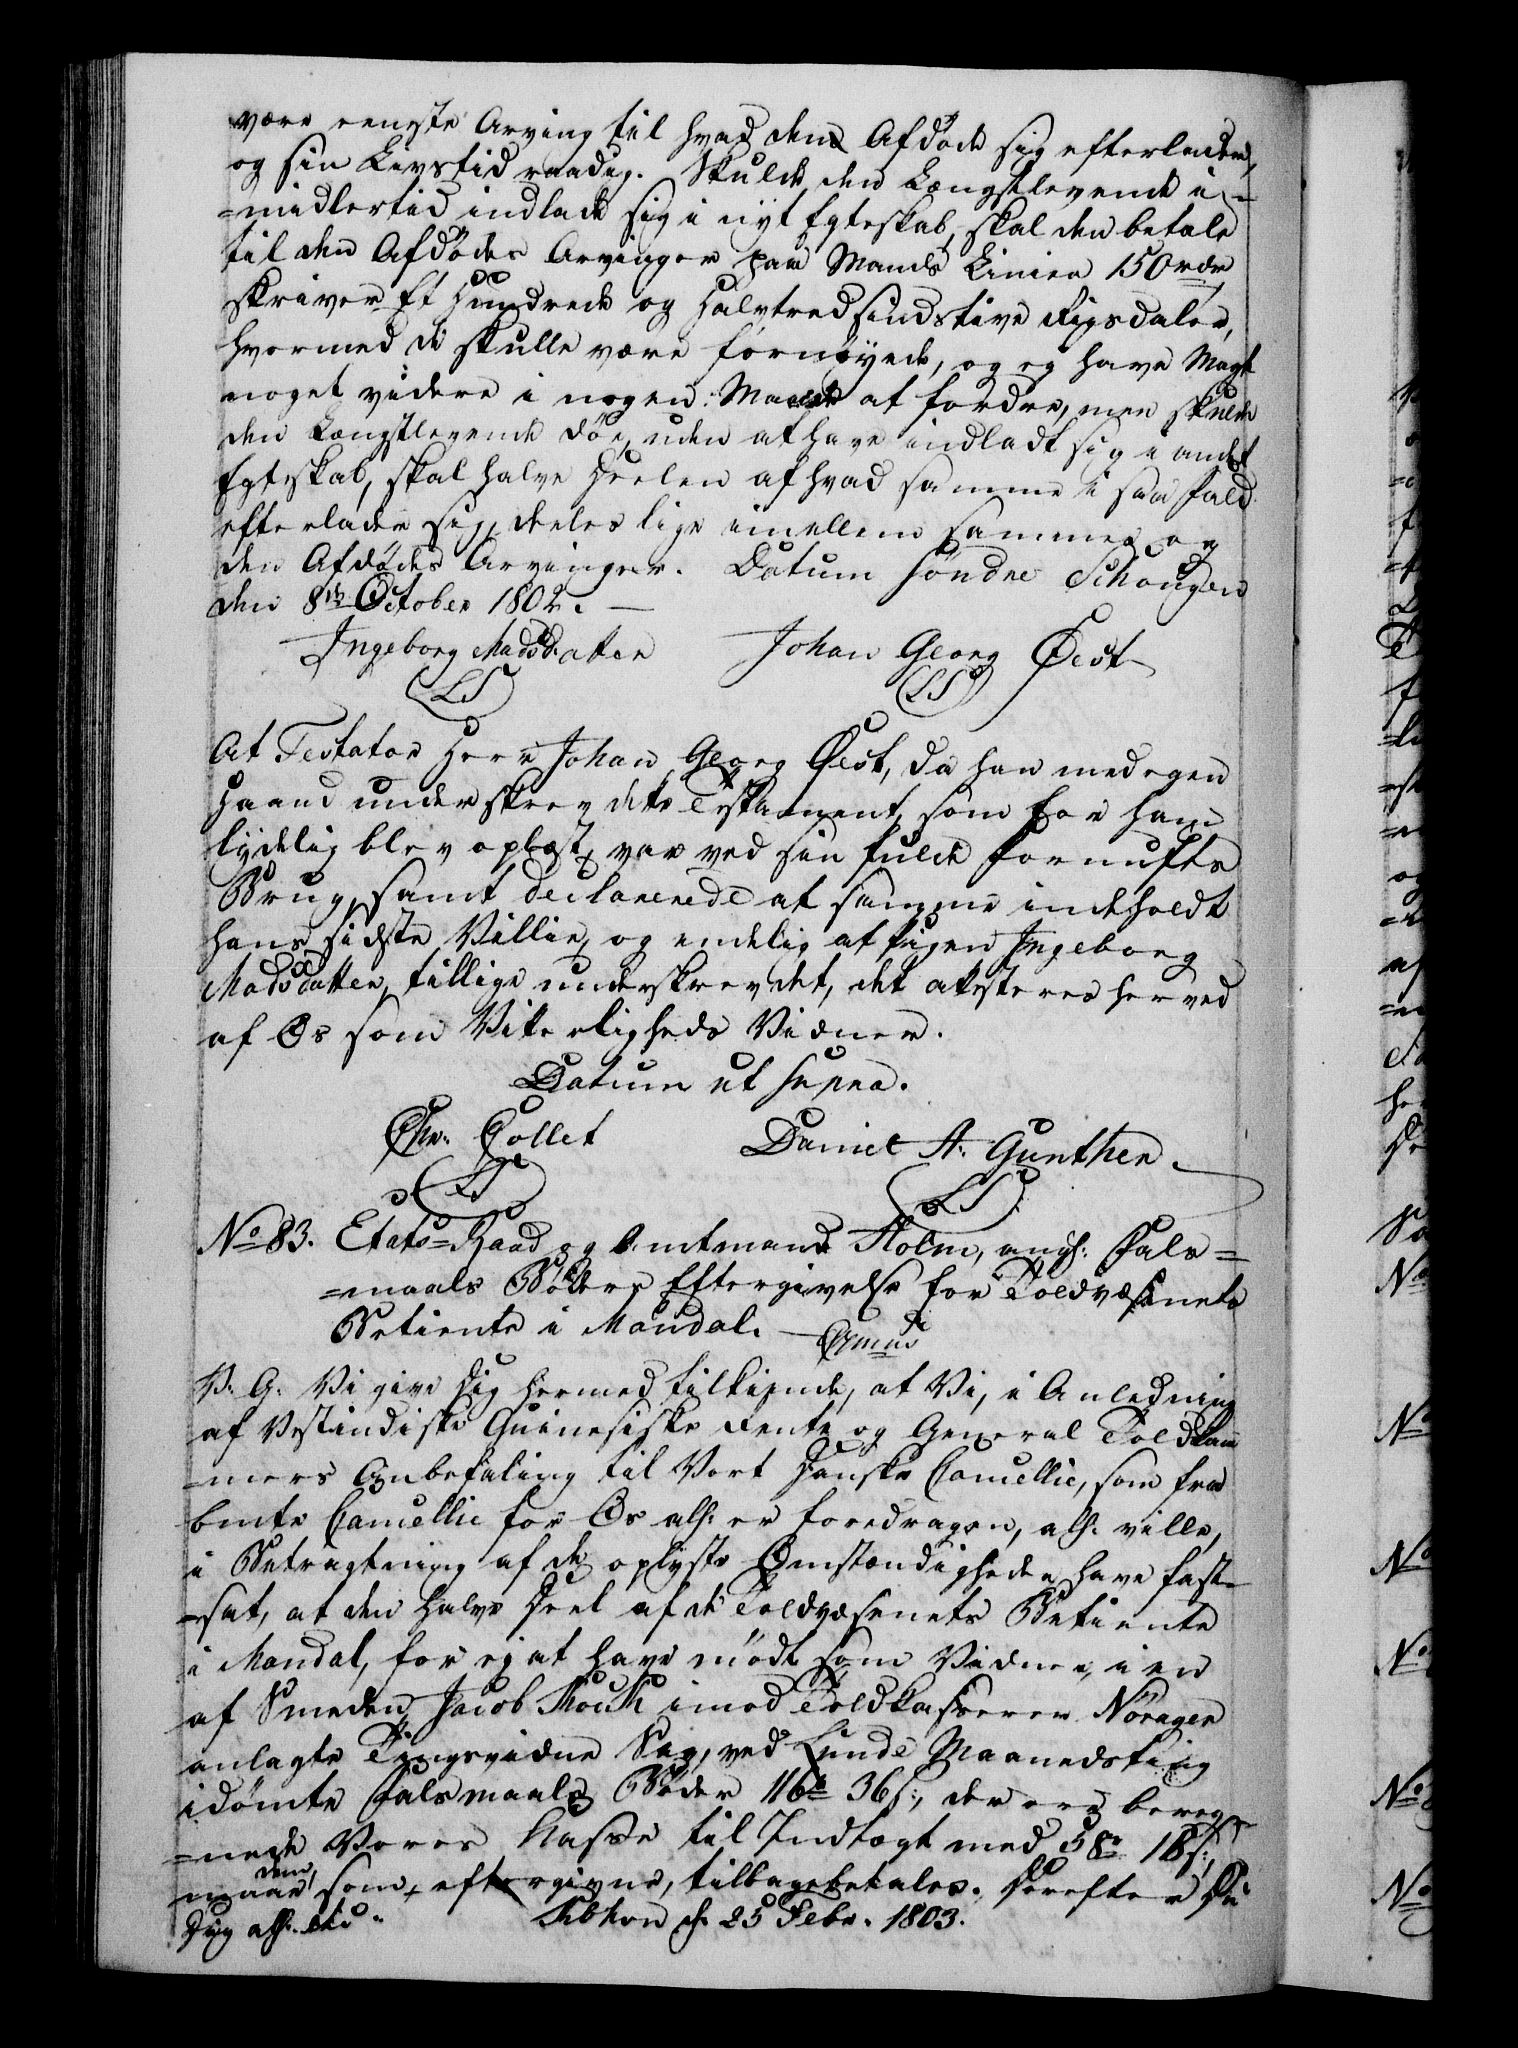 være eeneste Arving til hvad den Afdøde sig efterlader,
og sin Livstid raadig. Skulde den Længstlevende i-
=midlertid indlade sig i nyt Egteskab, skal den betale
til den Afdødes Arvinger paa Mands Linien 150 rdr
skriver Et Hundrede og Halvtredsindstive Rigsdaler,
hvormed de skulle være fornøyede, og ej have Magt
noget videre i nogen Maade at fordre, men skulde
den Længstlevende døe, uden at have indladt sig i andet
Egteskab, skal halve Deelen af hvad samme i saa Fald
efterlader sig, deeles lige imellem sammes og
den Afdødes Arvinger. Datum Søndre Schougen
den 8de October 1802.
Ingeborg Madsdatter Johan Georg Øest
(LS) (LS)
At Testator Herr Johan Georg Øest, da han med egen
Haand underskrev dette Testament, som for ham
lydelig blev oplæst, var ved sin fulde Fornufts
Brug, samt declarerede at samme indeholdt
hans sidste Villie, og endelig at Pigen Ingeborg
Madsdatter, tillige underskrev det, det attesteres herved
af Os som Vitterligheds Vidner.
Datum ut supra.
Chr. Collet Daniel A. Gunther
(LS) (LS)
No 83. Etats=Raad og Amtmand Holm, angl. Fals=
=maals Bøders Eftergivelse for Toldvæsenets
Betiente i Mandal.
V. G. Vi give Dig hermed tilkiende, at Vi, i Anledning
af Vestindiske Guinesiske Rente og General Toldkam
=mers Anbefaling til Vort Danske Cancellie, som fra
bemte Cancellie for Os alh. er foredragen, alh. ville,
i Betragtning af de oplyste Omstændigheder, have fast=
=sat, at den halve Deel af de Toldvæsenets Betiente
i Mandal, for ej at have mødt som Vidner, i en
af Smeden Jacob Mouch imod Toldkasserer Nørager
anlagte Tingsvidne Sag, ved Lunde Maanedsting
idømte Falsmaals Bøder 116 r 36 s., der ere bereg=
=nede Vores Kasse til Indtægt med 58 r 18 s.,
maae dem, som eftergivne, tilbagebetales. Derefter Du
Dig alh. etc. Kbhvn d. 25 Febr. 1803.